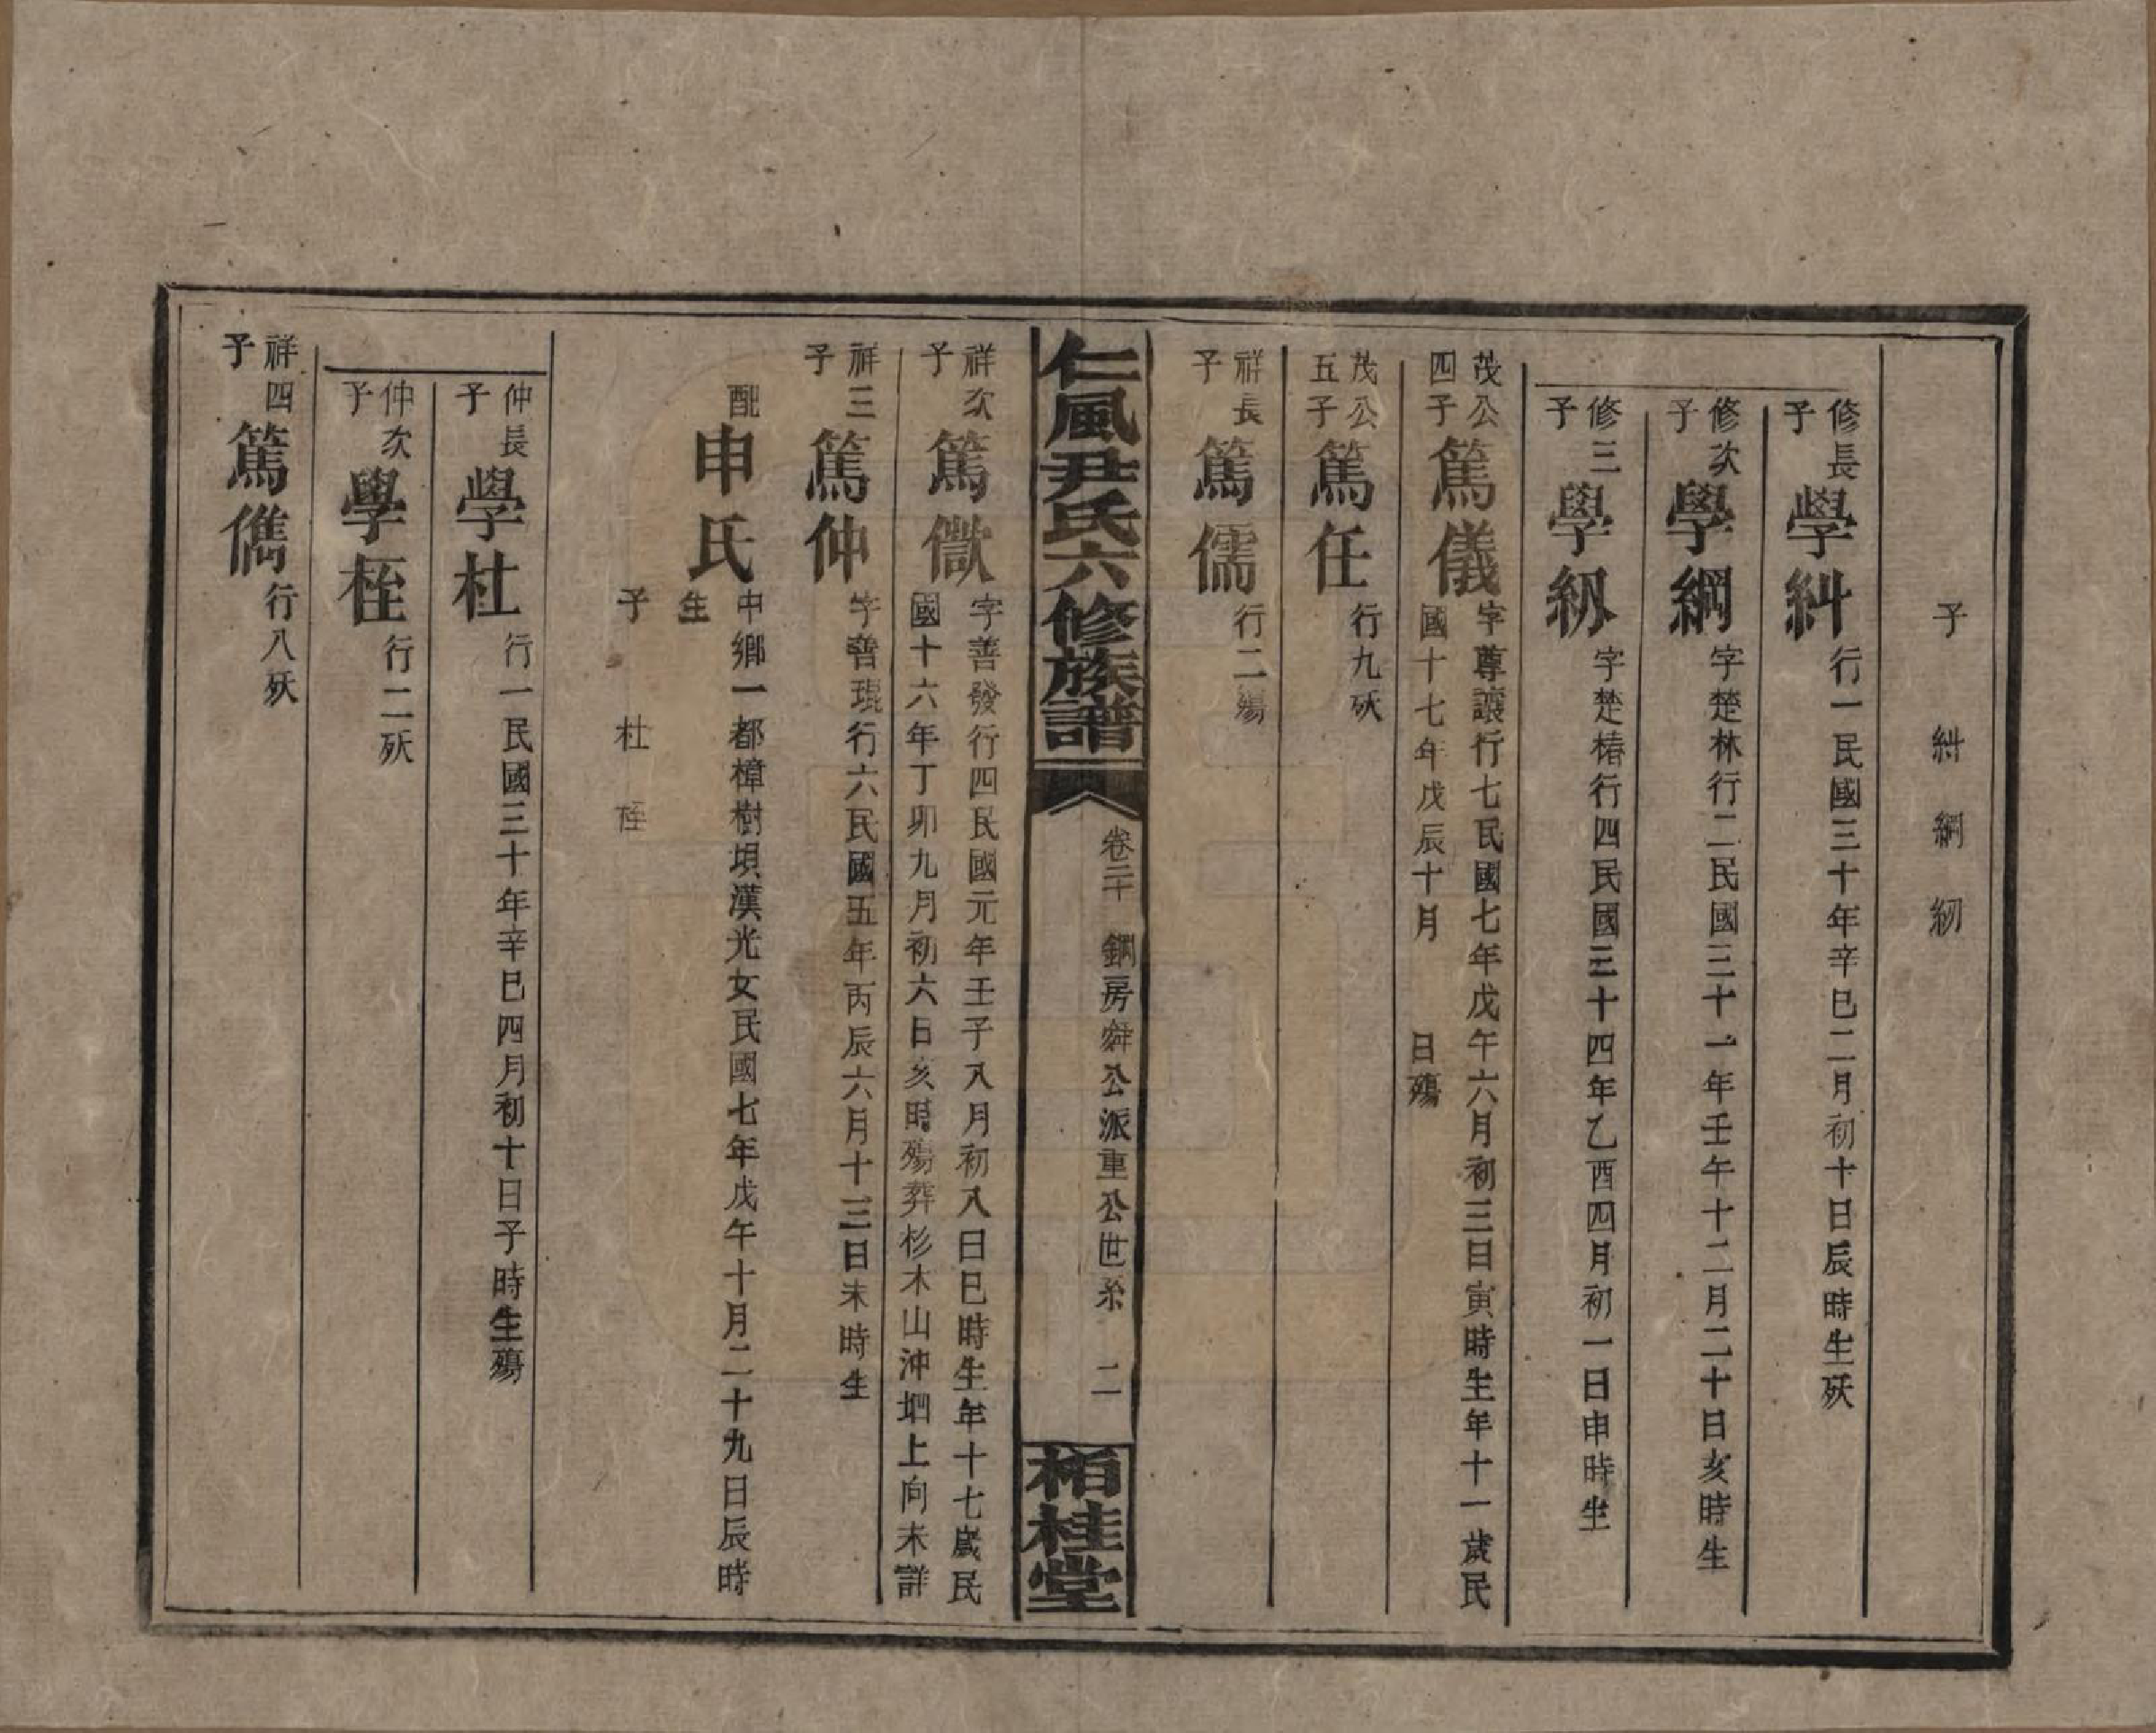 子　糾　綱　紉
修長子　學糾　行一民國三十年辛巳二月初十日辰時生殀
修次子　學綱　字楚林行二民國三十一年壬午十二月二十日亥時生
修三子　學紉　字楚椿行四民國三十四年乙酉四月初一日申時生
茂公四子　篤儀　字尊讓行七民國七年戊午六月初三日寅時生年十一歲民
國十七年戊辰十月　　日殤
茂公五子　篤任　行九殀
祥長子　篤儒　行二殤
仁風尹氏六修族譜　卷三十　鋼房舜公派重公世系　二　栢桂堂
祥次子　篤儆　字善發行四民國元年壬子八月初八日巳時生年十七歲民
國十六年丁卯九月初六日亥時殤葬杉木山沖堋上向未詳
祥三子　篤仲　字善琨行六民國五年丙辰六月十三日未時生
配　申氏　中鄉一都樟樹垻漢光女民國七年戊午十月二十九日辰時
生
子　杜　桎
仲長子　學杜　行一民國三十年辛巳四月初十日子時生殤
仲次子　學桎　行二殀
祥四子　篤儁　行八殀